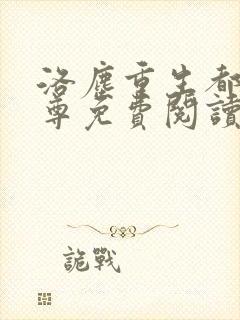 洛塵重生都
尊免費閱讀
詭戰